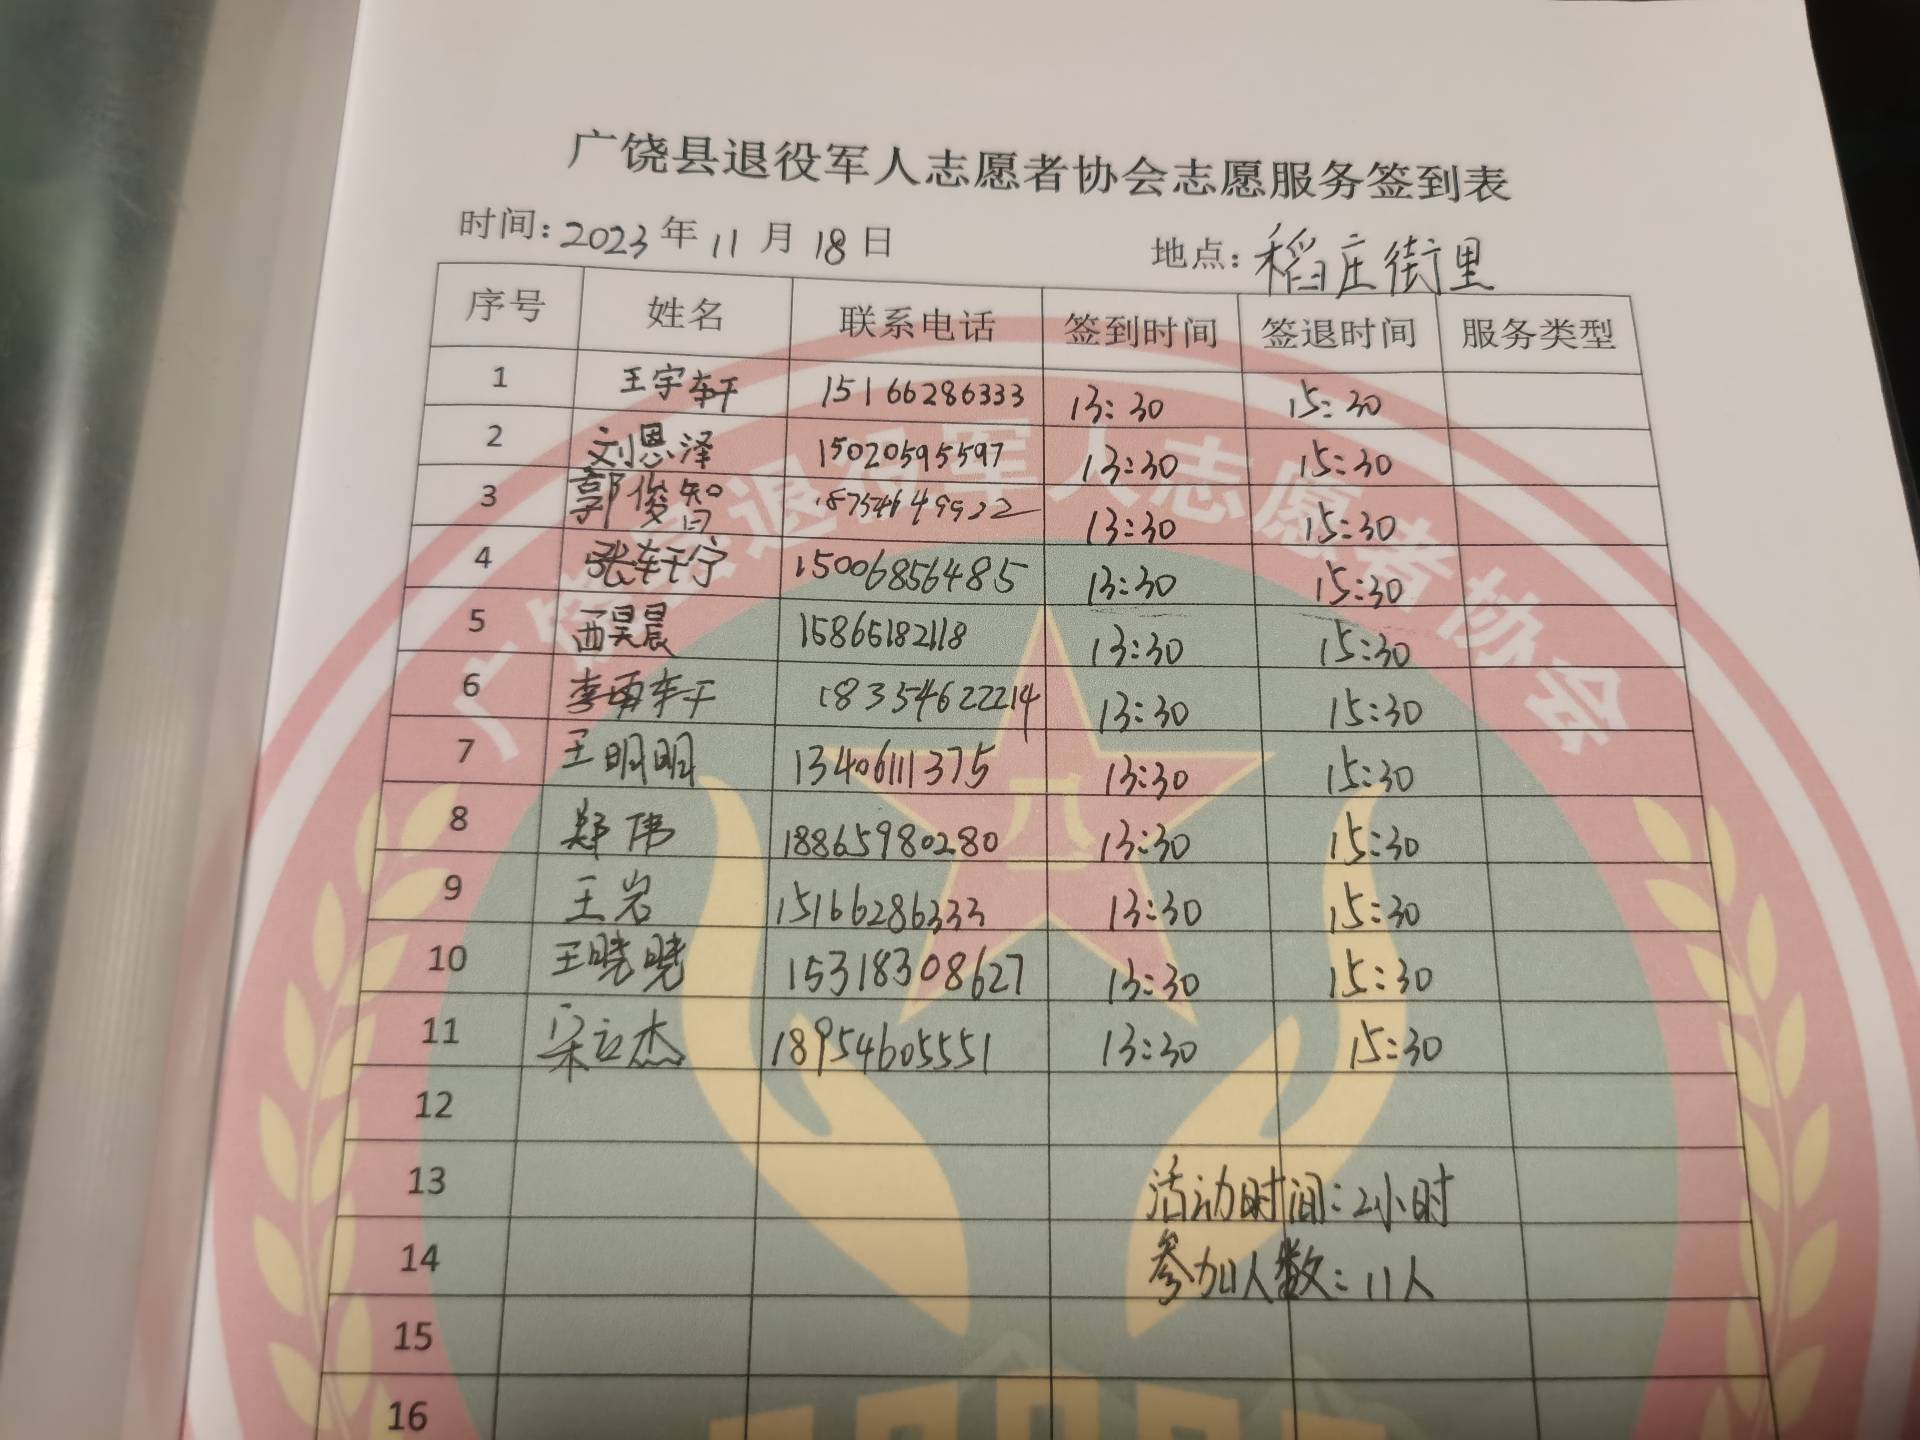 广饶县退役军人志愿者协会志愿服务签到表
时间: 2023 年 11 月 18 日 地点: 稻庄街里
序号 姓名 联系电话 签到时间 签退时间 服务类型
1 王宇轩 15166286333 13:30 15:30
2 刘恩泽 15020595597 13:30 15:30
3 郭俊智 18754649922 13:30 15:30
4 张轩宁 15006856485 13:30 15:30
5 西昊晨 15865182118 13:30 15:30
6 李雨轩 18354622214 13:30 15:30
7 王明明 13406111375 13:30 15:30
8 郑伟 18865980280 13:30 15:30
9 王岩 15166286333 13:30 15:30
10 王晓晓 15318308627 13:30 15:30
11 宋立杰 18954605551 13:30 15:30
12
13 活动时间: 2小时
14 参加人数: 11人
15
16
广饶县退役军人志愿者协会
八一